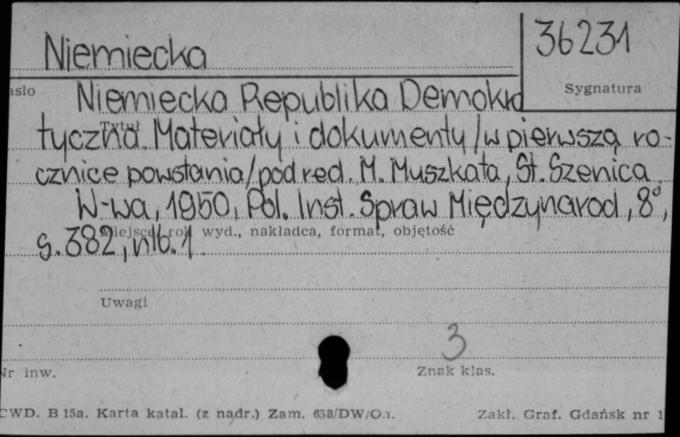 Niemiecka
36231
Sygnatura
asło
Niemiecka Republika Demokra
tyczna. Materiały i dokumenty /w pierwszą ro-
cznicę powstania/ pod red. M. Muszkata, St. Szenica
W-wa, 1950, Pol. Inst. Spraw Międzynarod, 8°,
Miejsce, rok wyd., nakładca, format, objętość
s. 382, nlb. 1
Uwagi
3
Nr inw.
Znak klas.
CWD. B 15a. Karta katal. (z nadr.) Zam. 658/DW/O.1.
Zakł. Graf. Gdańsk nr 1